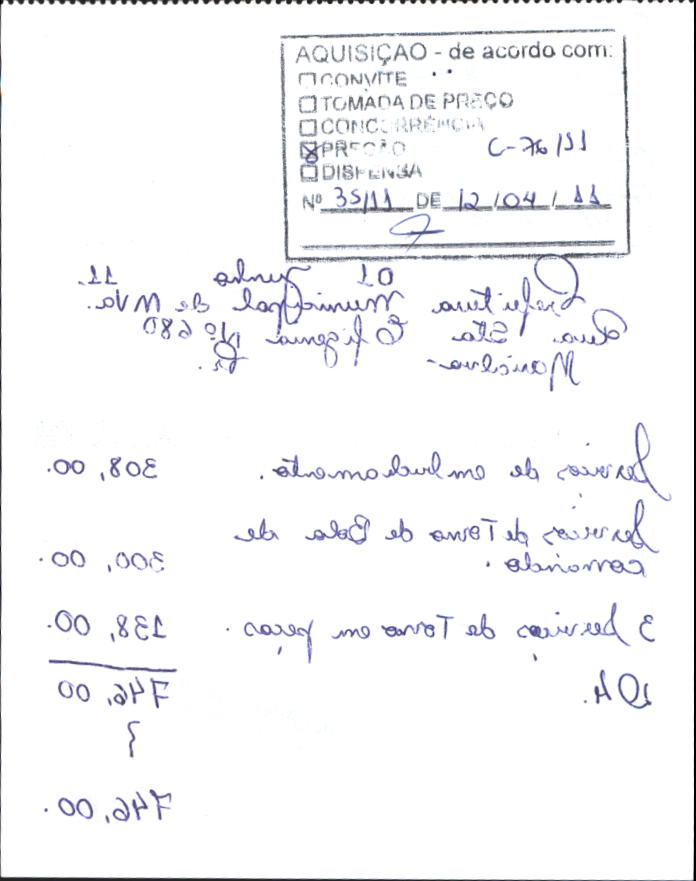 AQUISIÇAO - de acordo com:
CONVITE
TOMADA DE PREÇO
CONCORRÊNCIA
PREGÃO C-76/11
DISPENSA
Nº 35/11 DE 12/04/11
01 Junho 11.
Prefeitura Municipal de M Va.
Rua Sta Efigenia Nº 680
Marialva - Pr.
Servicos de embuchamento. 308,00.
Servicos de Torno de Bola de
comando. 300,00.
3 Servicos de Torno em peças. 138,00.
746,00
746,00.